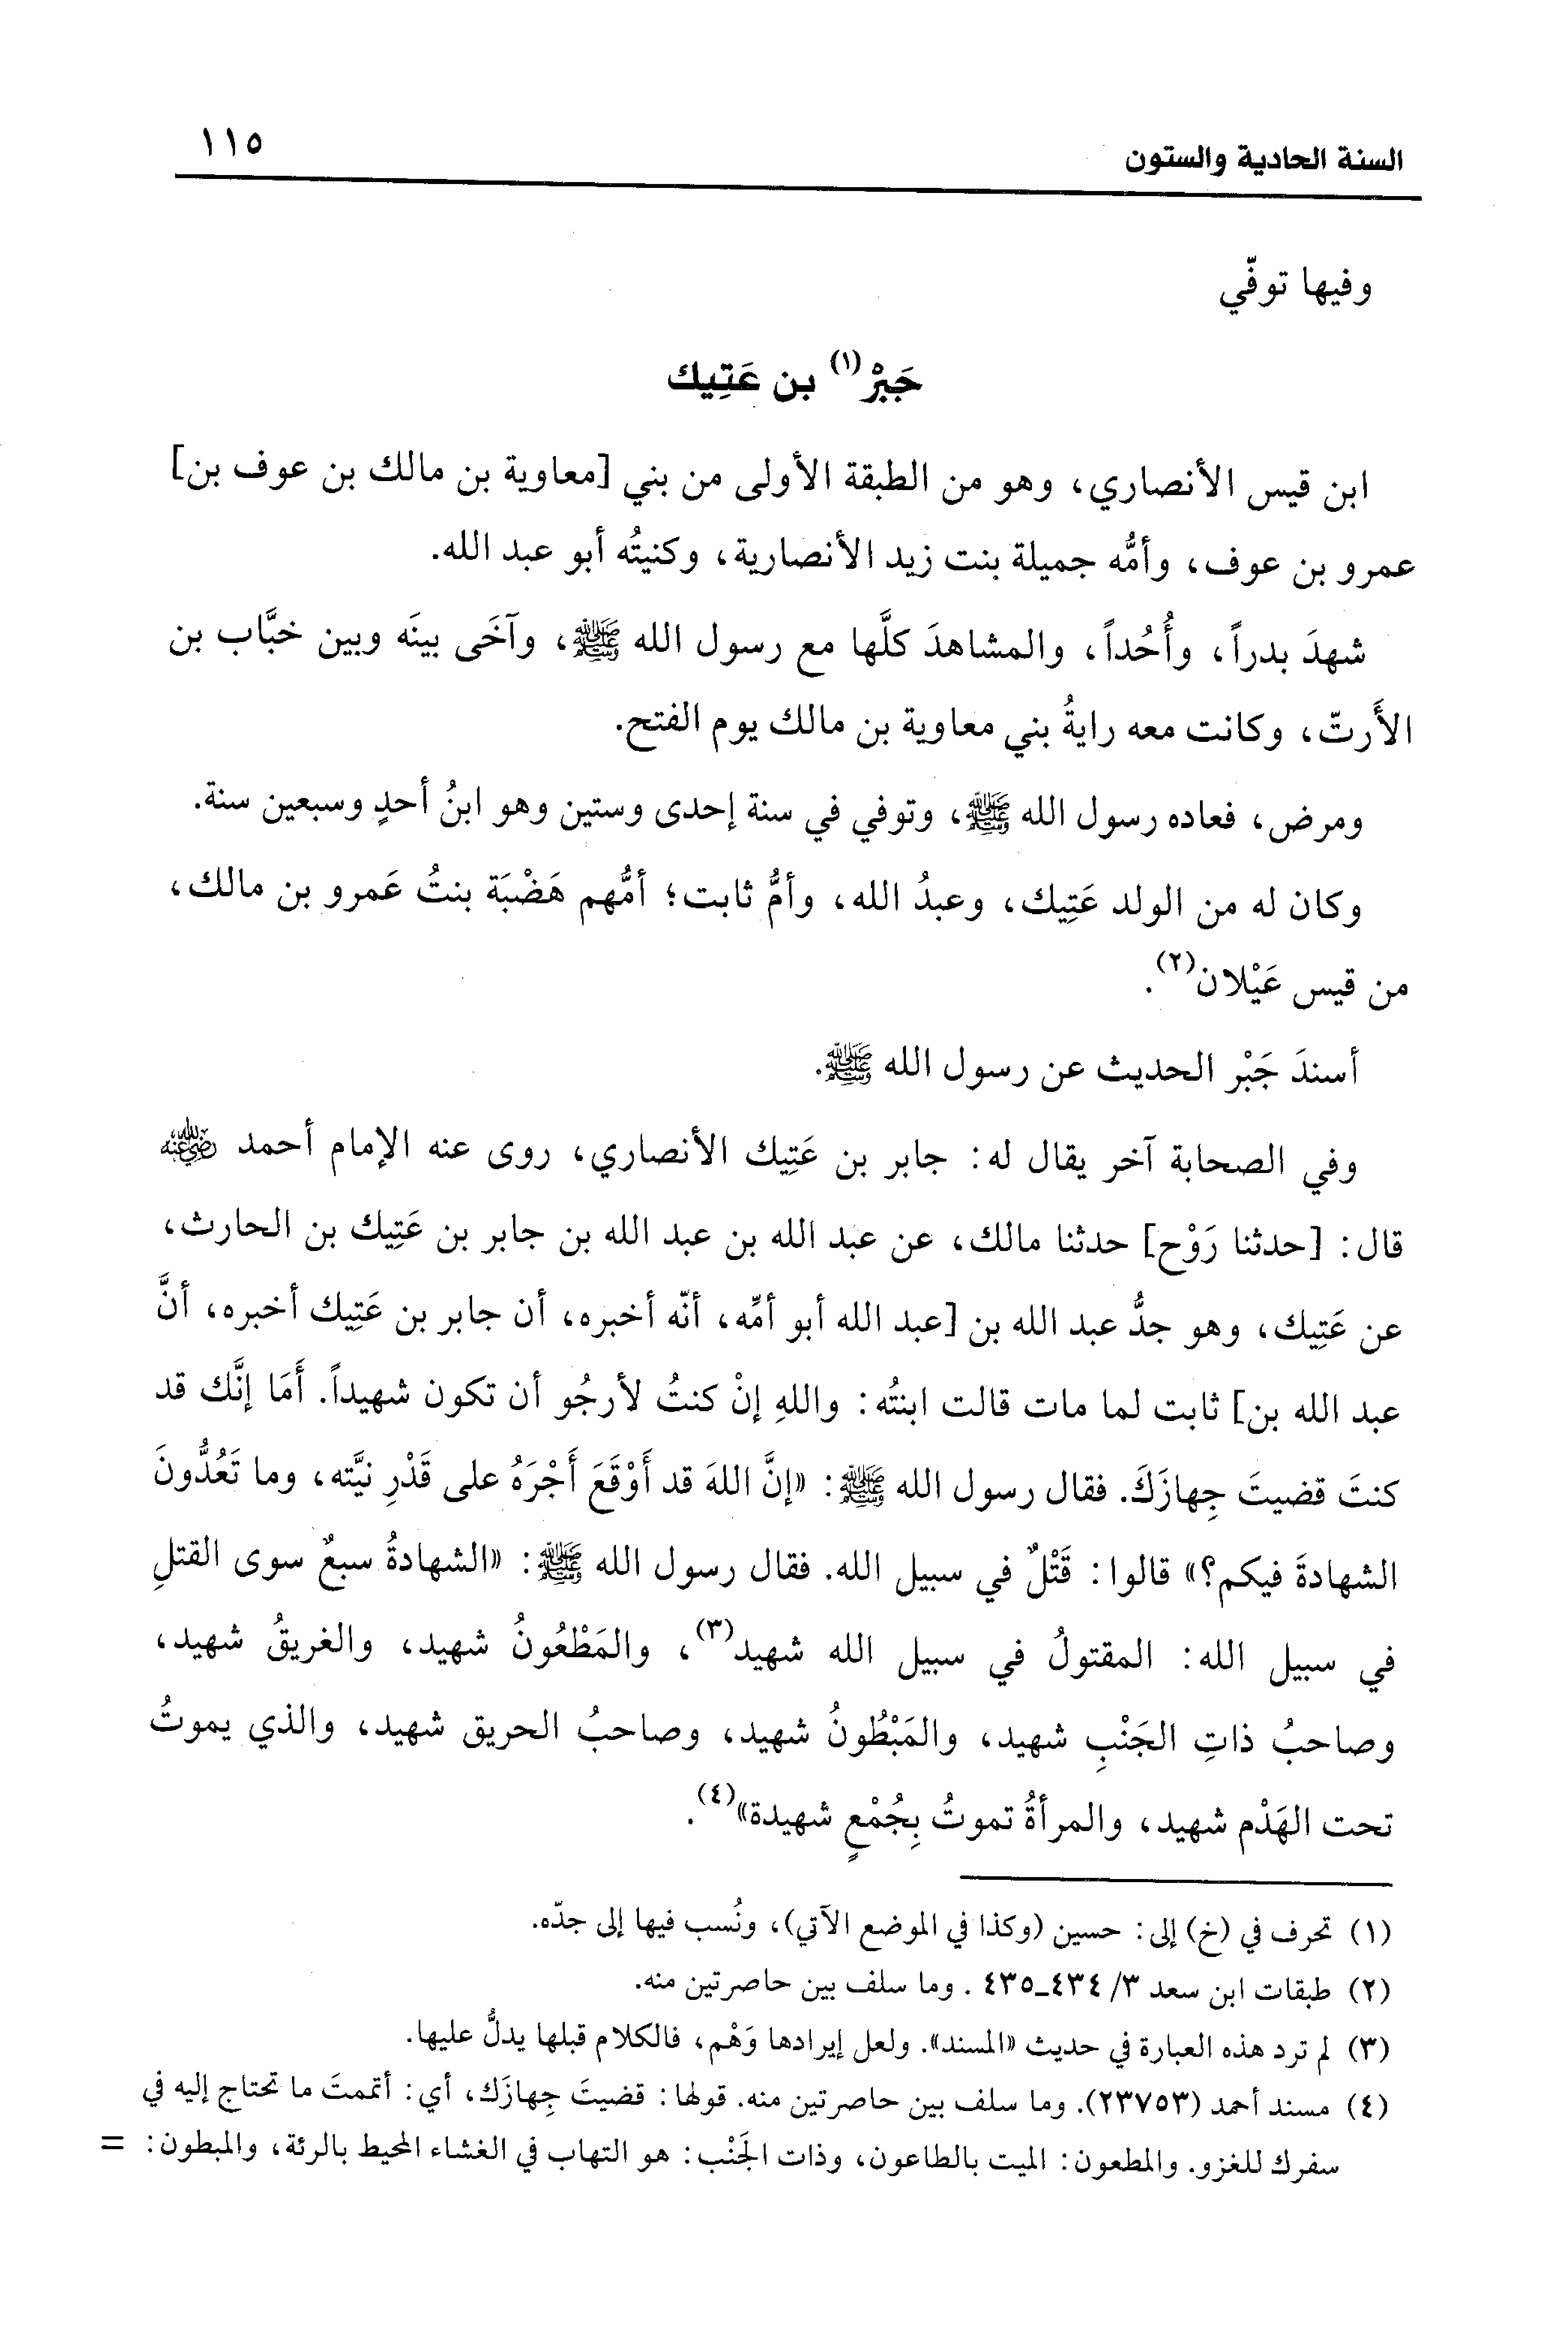 السنة الحادية والستون ١١٥
وفيها توفّي
جَبْر(١) بن عَتِيك
ابن قيس الأنصاري، وهو من الطبقة الأولى من بني [معاوية بن مالك بن عوف بن]
عمرو بن عوف، وأمُّه جميلة بنت زيد الأنصارية، وكنيتُه أبو عبد الله.
شهدَ بدراً، وأُحُداً، والمشاهدَ كلَّها مع رسول الله ﷺ، وآخَى بينَه وبين خبَّاب بن
الأَرتّ، وكانت معه رايةُ بني معاوية بن مالك يوم الفتح.
ومرض، فعاده رسول الله ﷺ، وتوفي في سنة إحدى وستين وهو ابنُ أحدٍ وسبعين سنة.
وكان له من الولد عَتِيك، وعبدُ الله، وأمُّ ثابت؛ أمُّهم هَضْبَة بنتُ عَمرو بن مالك،
من قيس عَيْلان(٢).
أسندَ جَبْر الحديث عن رسول الله ﷺ.
وفي الصحابة آخر يقال له: جابر بن عَتِيك الأنصاري، روى عنه الإمام أحمد رضي الله عنه
قال: [حدثنا رَوْح] حدثنا مالك، عن عبد الله بن عبد الله بن جابر بن عَتِيك بن الحارث،
عن عَتِيك، وهو جدُّ عبد الله بن [عبد الله أبو أمِّه، أنّه أخبره، أن جابر بن عَتِيك أخبره، أنَّ
عبد الله بن] ثابت لما مات قالت ابنتُه: واللهِ إنْ كنتُ لأرجُو أن تكون شهيداً. أَمَا إنَّك قد
كنتَ قضيتَ جِهازَكَ. فقال رسول الله ﷺ: «إنَّ اللهَ قد أَوْقَعَ أَجْرَهُ على قَدْرِ نيَّته، وما تَعُدُّونَ
الشهادةَ فيكم؟» قالوا: قَتْلٌ في سبيل الله. فقال رسول الله ﷺ: «الشهادةُ سبعٌ سوى القتلِ
في سبيل الله: المقتولُ في سبيل الله شهيد(٣)، والمَطْعُونُ شهيد، والغريقُ شهيد،
وصاحبُ ذاتِ الجَنْبِ شهيد، والمَبْطُونُ شهيد، وصاحبُ الحريق شهيد، والذي يموتُ
تحت الهَدْم شهيد، والمرأةُ تموتُ بِجُمْعٍ شهيدة»(٤).
(١) تحرف في (خ) إلى: حسين (وكذا في الموضع الآتي)، ونُسب فيها إلى جدّه.
(٢) طبقات ابن سعد ٣/ ٤٣٤_٤٣٥ . وما سلف بين حاصرتين منه.
(٣) لم ترد هذه العبارة في حديث «المسند». ولعل إيرادها وَهْم، فالكلام قبلها يدلُّ عليها.
(٤) مسند أحمد (٢٣٧٥٣). وما سلف بين حاصرتين منه. قولها: قضيتَ جِهازَك، أي: أتممتَ ما تحتاج إليه في
سفرك للغزو. والمطعون: الميت بالطاعون، وذات الجَنْب: هو التهاب في الغشاء المحيط بالرئة، والمبطون: =